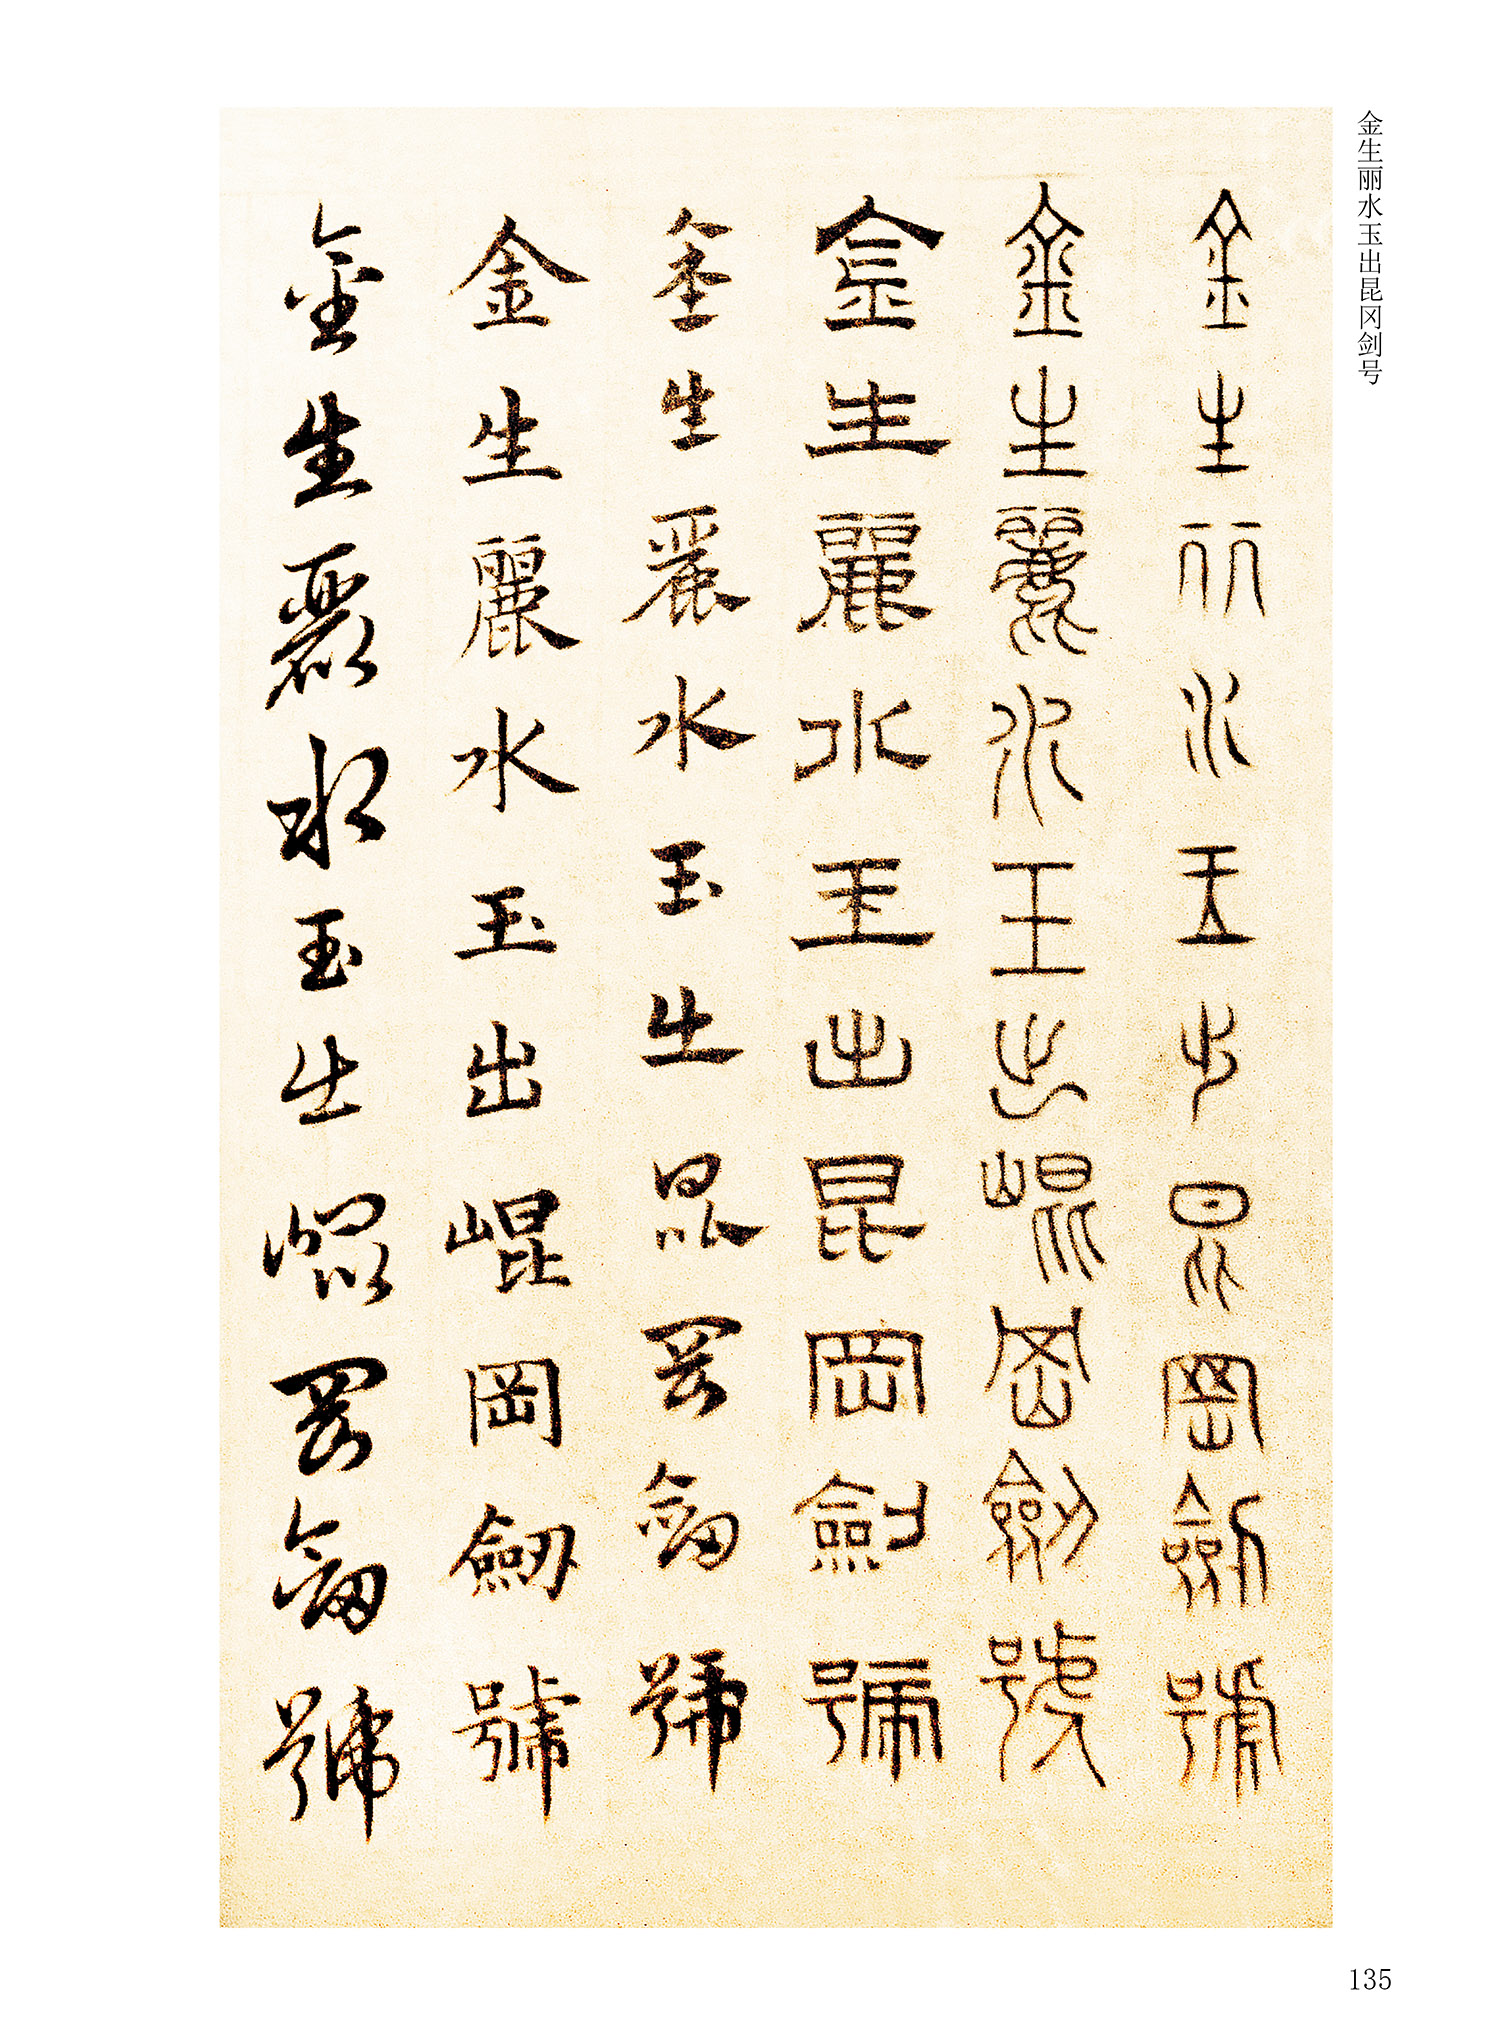 金生丽水玉出昆冈剑号
金生麗水玉出昆岡劒號
金生麗水玉出崐岡劒號
金生麗水玉出昆岡劍號
金生麗水玉出昆岡劒號
金生麗水玉出崐岡劒號
金生麗水玉出崐岡劒號
135